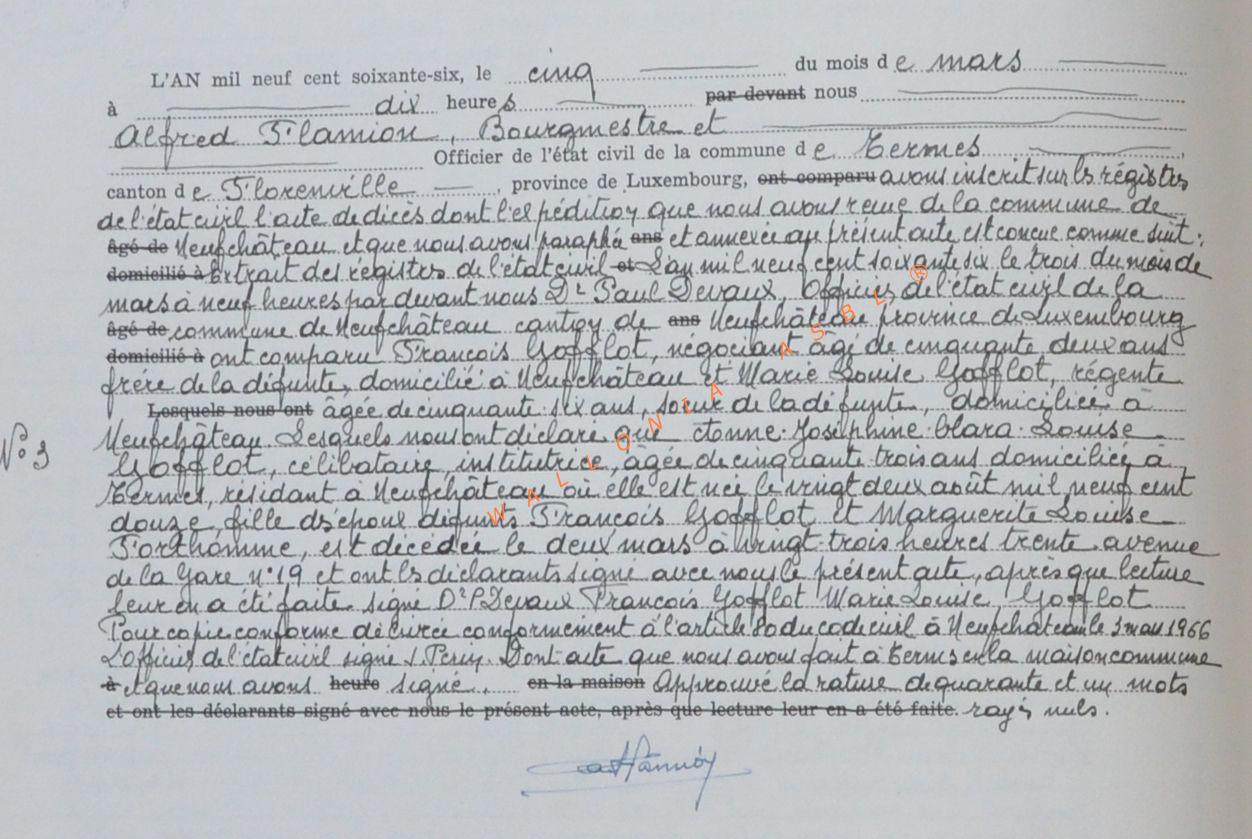 L'AN mil neuf cent soixante-six, le cinq du mois d e mars
à dix heure s par devant nous
Alfred Flamion, Bourgmestre et
Officier de l'état civil de la commune d e Termes,
canton d e Florenville, province de Luxembourg, ont comparu avons inscrit sur les régistres
de l'état civil l'acte de décès dont l'expédition que nous avons reçue de la commune de
âgé de Neufchâteau et que nous avons paraphé ans et annexée au présent acte est conçue comme suit :
domicilié à Extrait des régistres de l'état civil et L'an mil neuf cent soixante six le trois du mois de
mars à neuf heures par devant nous Dr Paul Devaux, Officier de l'état civil de la
âgé de commune de Neufchâteau canton de ans Neufchâteau province de Luxembourg
domicilié à ont comparu François Gofflot, négociant âgé de cinquante deux ans
frère de la défunte, domicilié à Neufchâteau et Marie Louise Gofflot, régente
Lesquels nous ont âgée de cinquante-six ans, soeur de la défunte, domiciliée à
Neufchâteau. Lesquels nous ont déclaré que Joséphine-Clara-Louise
N° 3
Gofflot, célibataire, institutrice, âgée de cinquante-trois ans domiciliée à
Termes, résidant à Neufchâteau où elle est née le vingt deux août mil neuf cent
douze, fille des époux défunts François Gofflot et Marguerite Louise
Forthomme, est décédée le deux mars à vingt-trois heures trente avenue
de la Gare n° 19 et ont les déclarants signé avec nous le présent acte, après que lecture
leur en a été faite. signé Dr P. Devaux François Gofflot Marie Louise, Gofflot
Pour copie conforme délivrée conformément à l'article 80 du code civil à Neufchâteau le 3 mars 1966
L'officier de l'état civil signé Dont acte que nous avons fait à Termes en la maison commune
à et que nous avons heure signé. en la maison Approuvé la rature de quarante et un mots
et ont les déclarants signé avec nous le présent acte, après que lecture leur en a été faite. rayés nuls.
WALLONIA ASBL ®